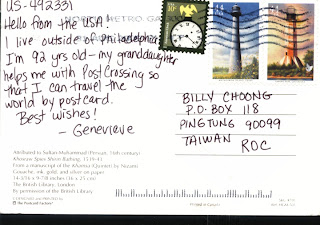 US-492331
Hello from the USA!
I live outside of Philadelphia.
I'm 92 years old - my granddaughter
helps me with PostCrossing so
that I can travel the
world by postcard.
Best wishes!
- Genevieve
BILLY CHOONG
P.O. BOX 118
PINGTUNG 90099
TAIWAN
ROC
Attributed to Sultan Muhammad (Persian, 16th century)
Khusraw Spies Shirin Bathing, 1539-43
From a manuscript of the Khamsa (Quintet) by Nizami
Gouache, ink, gold, and silver on paper
14-5/16 x 9-7/8 inches (36 x 25 cm)
The British Library, London
By permission of the British Library